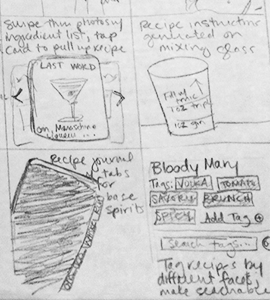 Swipe thru photos w/
ingredient list, tap
card to pull up recipe
LAST WORD
gin, Maraschino
Recipe instructions
generated on
mixing glass
Fill w/
1oz
1oz gin
Recipe journal
tabs
for
base
spirits
Bloody Mary
Tags: VODKA TOMATO
SAVORY BRUNCH
SPICY Add Tag +
Search tags...
Tag recipes by
different facets,
make searchable